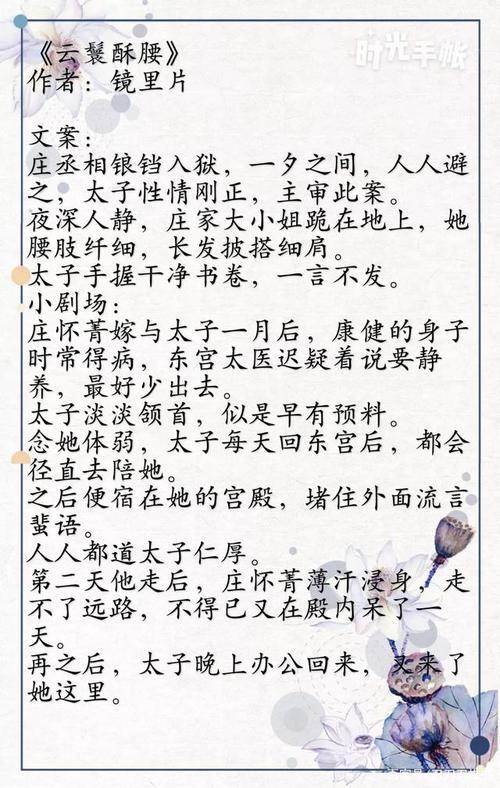 时光手帐
《云鬓酥腰》
作者：镜里片
文案：
庄丞相锒铛入狱，一夕之间，人人避
之，太子性情刚正，主审此案。
夜深人静，庄家大小姐跪在地上，她
腰肢纤细，长发披搭细肩。
太子手握干净书卷，一言不发。
小剧场：
庄怀菁嫁与太子一月后，康健的身子
时常得病，东宫太医迟疑着说要静
养，最好少出去。
太子淡淡颔首，似是早有预料。
念她体弱，太子每天回东宫后，都会
径直去陪她。
之后便宿在她的宫殿，堵住外面流言
蜚语。
人人都道太子仁厚。
第二天他走后，庄怀菁薄汗浸身，走
不了远路，不得已又在殿内呆了一
天。
再之后，太子晚上办公回来，又来了
她这里。